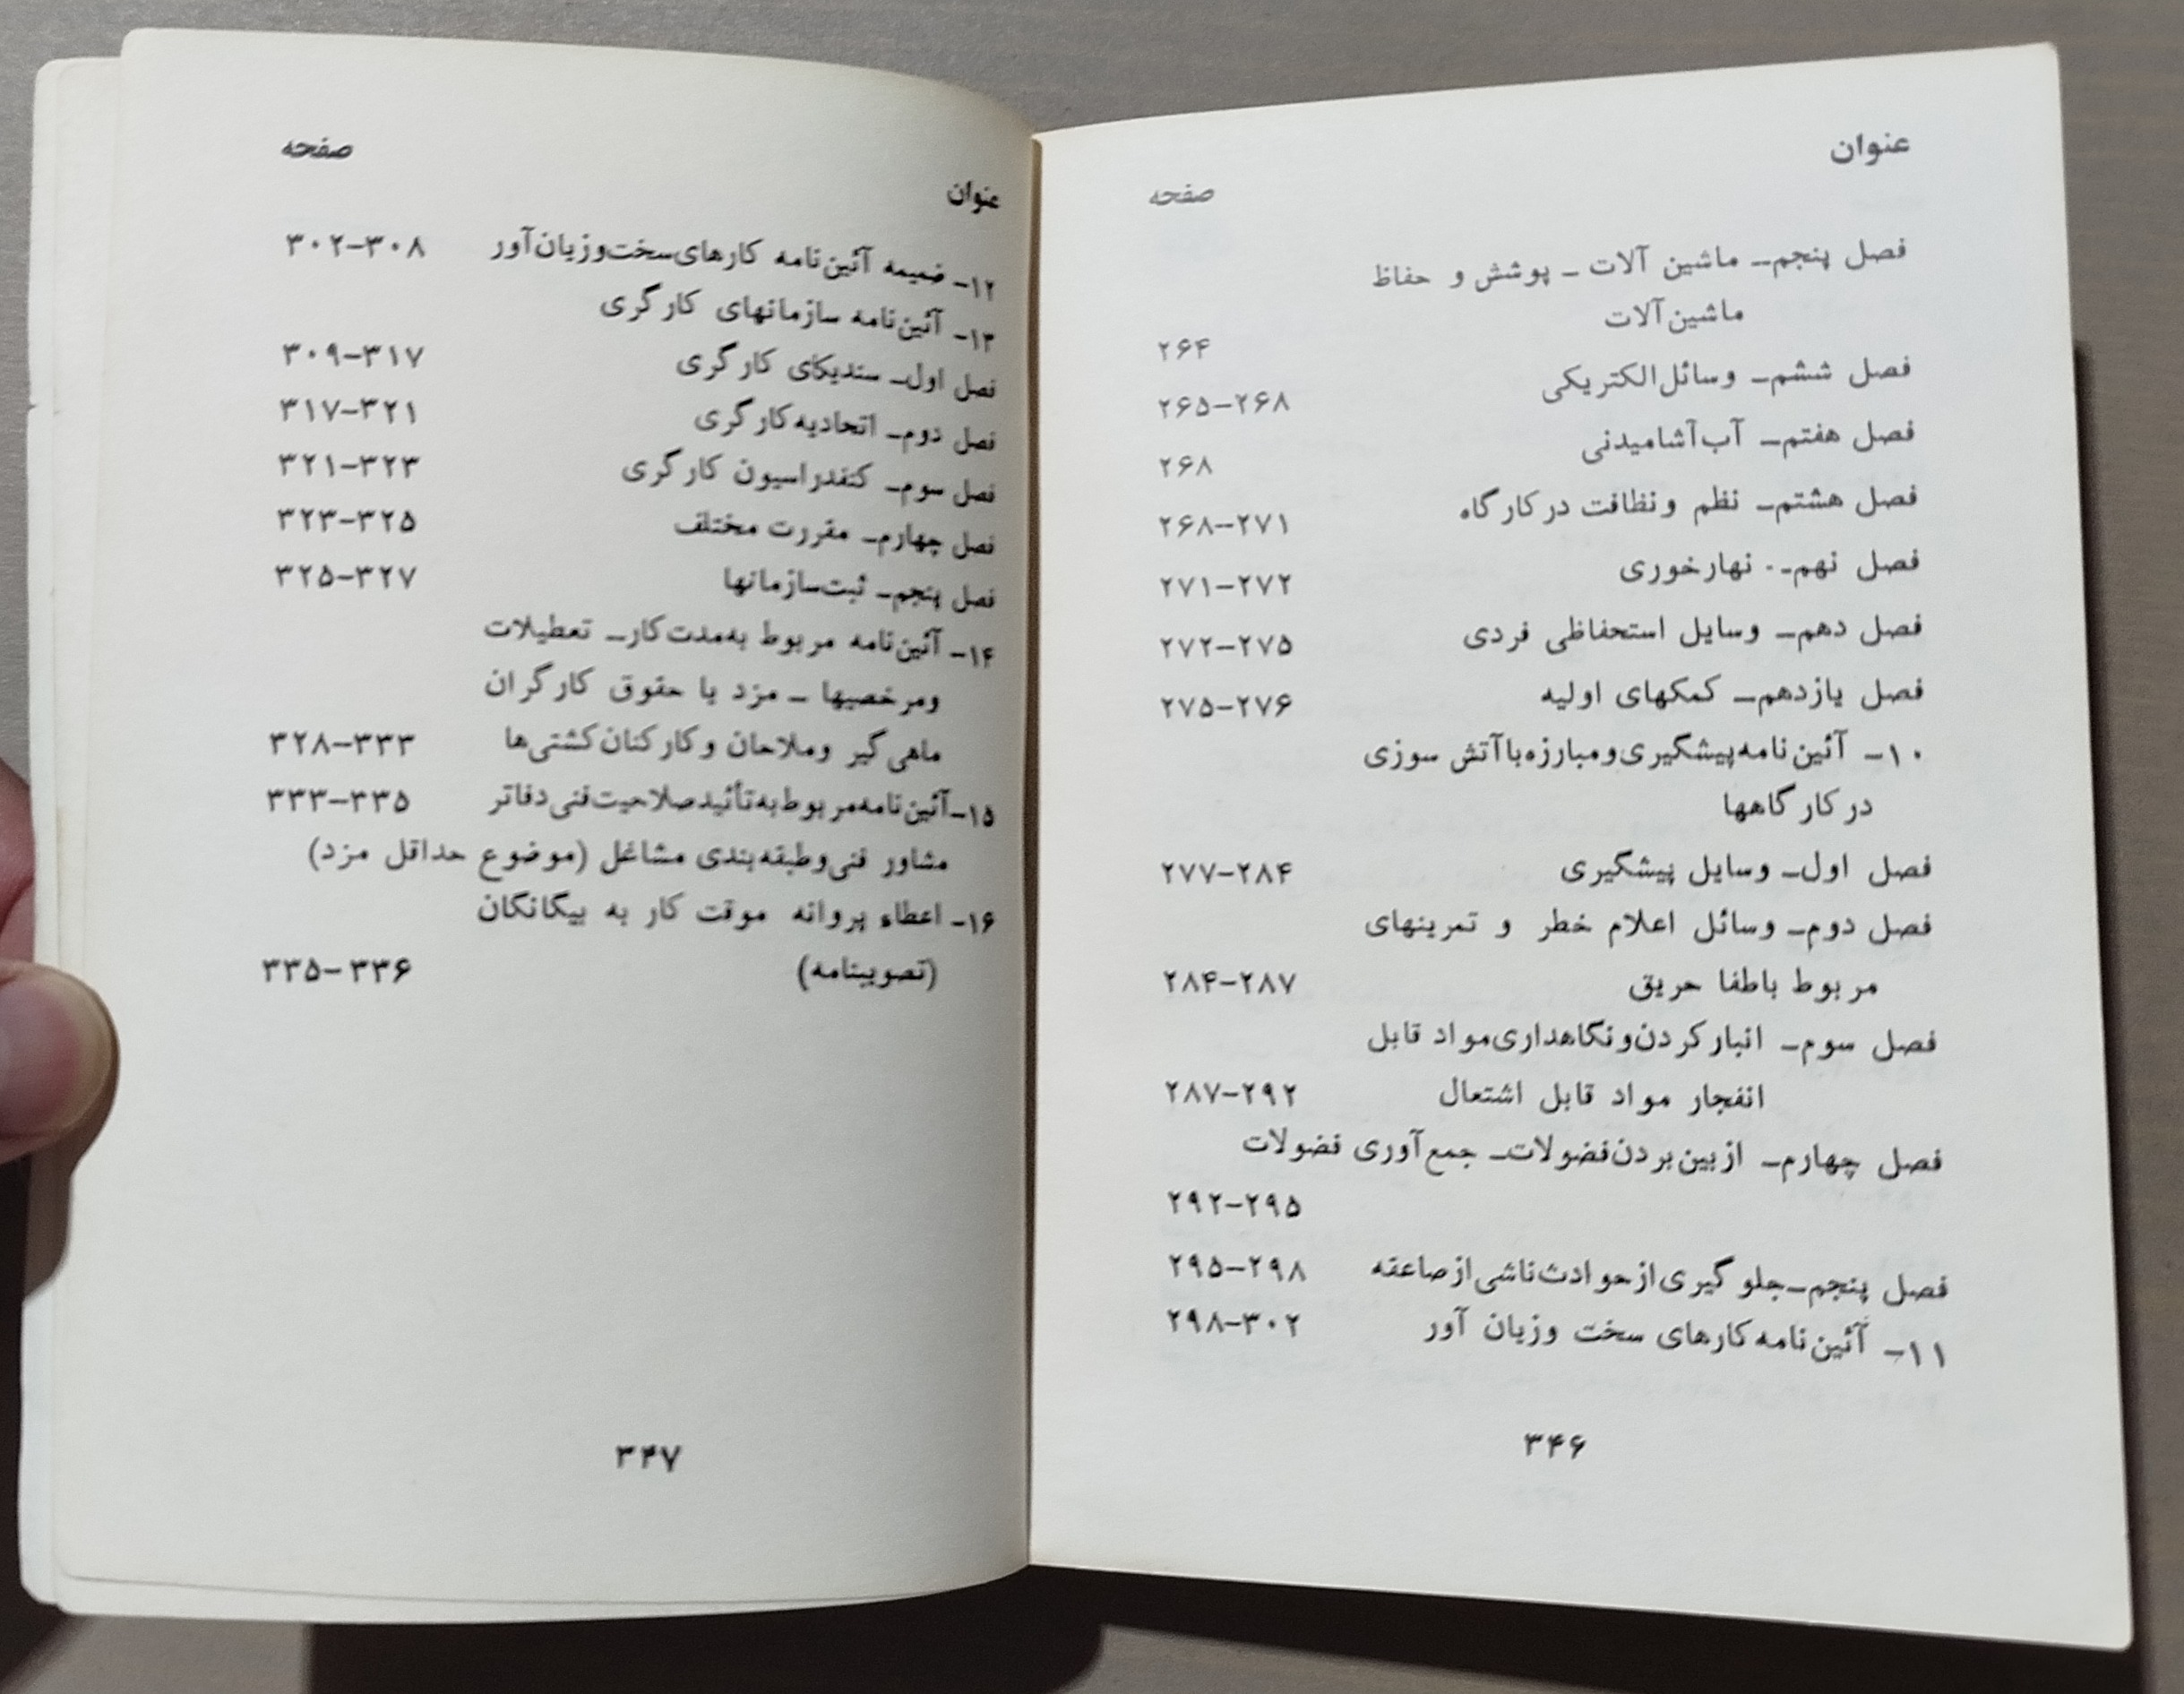 عنوان
صفحه
فصل پنجم– ماشین آلات – پوشش و حفاظ
ماشین‌آلات
۲۶۴
فصل ششم– وسائل‌الکتریکی
۲۶۵–۲۶۸
فصل هفتم– آب‌آشامیدنی
۲۶۸
فصل هشتم– نظم ونظافت درکارگاه
۲۶۸–۲۷۱
فصل نهم– نهارخوری
۲۷۱–۲۷۲
فصل دهم– وسایل استحفاظی فردی
۲۷۲–۲۷۵
فصل یازدهم– کمکهای اولیه
۲۷۵–۲۷۶
۱۰– آئین‌نامه‌پیشگیری‌ومبارزه‌باآتش سوزی
درکارگاهها
فصل اول– وسایل پیشگیری
۲۷۷–۲۸۴
فصل دوم– وسائل اعلام خطر و تمرینهای
مربوط باطفا حریق
۲۸۴–۲۸۷
فصل سوم– انبارکردن‌ونگاهداری‌مواد قابل
انفجار مواد قابل اشتعال
۲۸۷–۲۹۲
فصل چهارم– ازبین‌بردن‌فضولات– جمع‌آوری فضولات
۲۹۲–۲۹۵
فصل پنجم–جلوگیری‌ازحوادث‌ناشی‌ازصاعقه
۲۹۵–۲۹۸
۱۱– آئین‌نامه‌کارهای سخت وزیان آور
۲۹۸–۳۰۲
۳۴۶
صفحه
عنوان
۱۲– ضمیمه آئین‌نامه کارهای‌سخت‌وزیان‌آور
۳۰۲–۳۰۸
۱۳– آئین‌نامه سازمانهای کارگری
فصل اول– سندیکای کارگری
۳۰۹–۳۱۷
فصل دوم– اتحادیه‌کارگری
۳۱۷–۳۲۱
فصل سوم– کنفدراسیون کارگری
۳۲۱–۳۲۳
فصل چهارم– مقررت مختلف
۳۲۳–۳۲۵
فصل پنجم– ثبت‌سازمانها
۳۲۵–۳۲۷
۱۴– آئین‌نامه مربوط به‌مدت‌کار– تعطیلات
ومرخصیها – مزد یا حقوق کارگران
ماهی‌گیر وملاحان وکارکنان‌کشتی‌ها
۳۲۸–۳۳۳
۱۵–آئین‌نامه‌مربوط‌به‌تأئیدصلاحیت‌فنی‌دفاتر
۳۳۳–۳۳۵
مشاور فنی‌وطبقه‌بندی مشاغل (موضوع حداقل مزد)
۱۶– اعطاء پروانه موقت کار به بیگانگان
(تصویبنامه)
۳۳۵–۳۳۶
۳۴۷